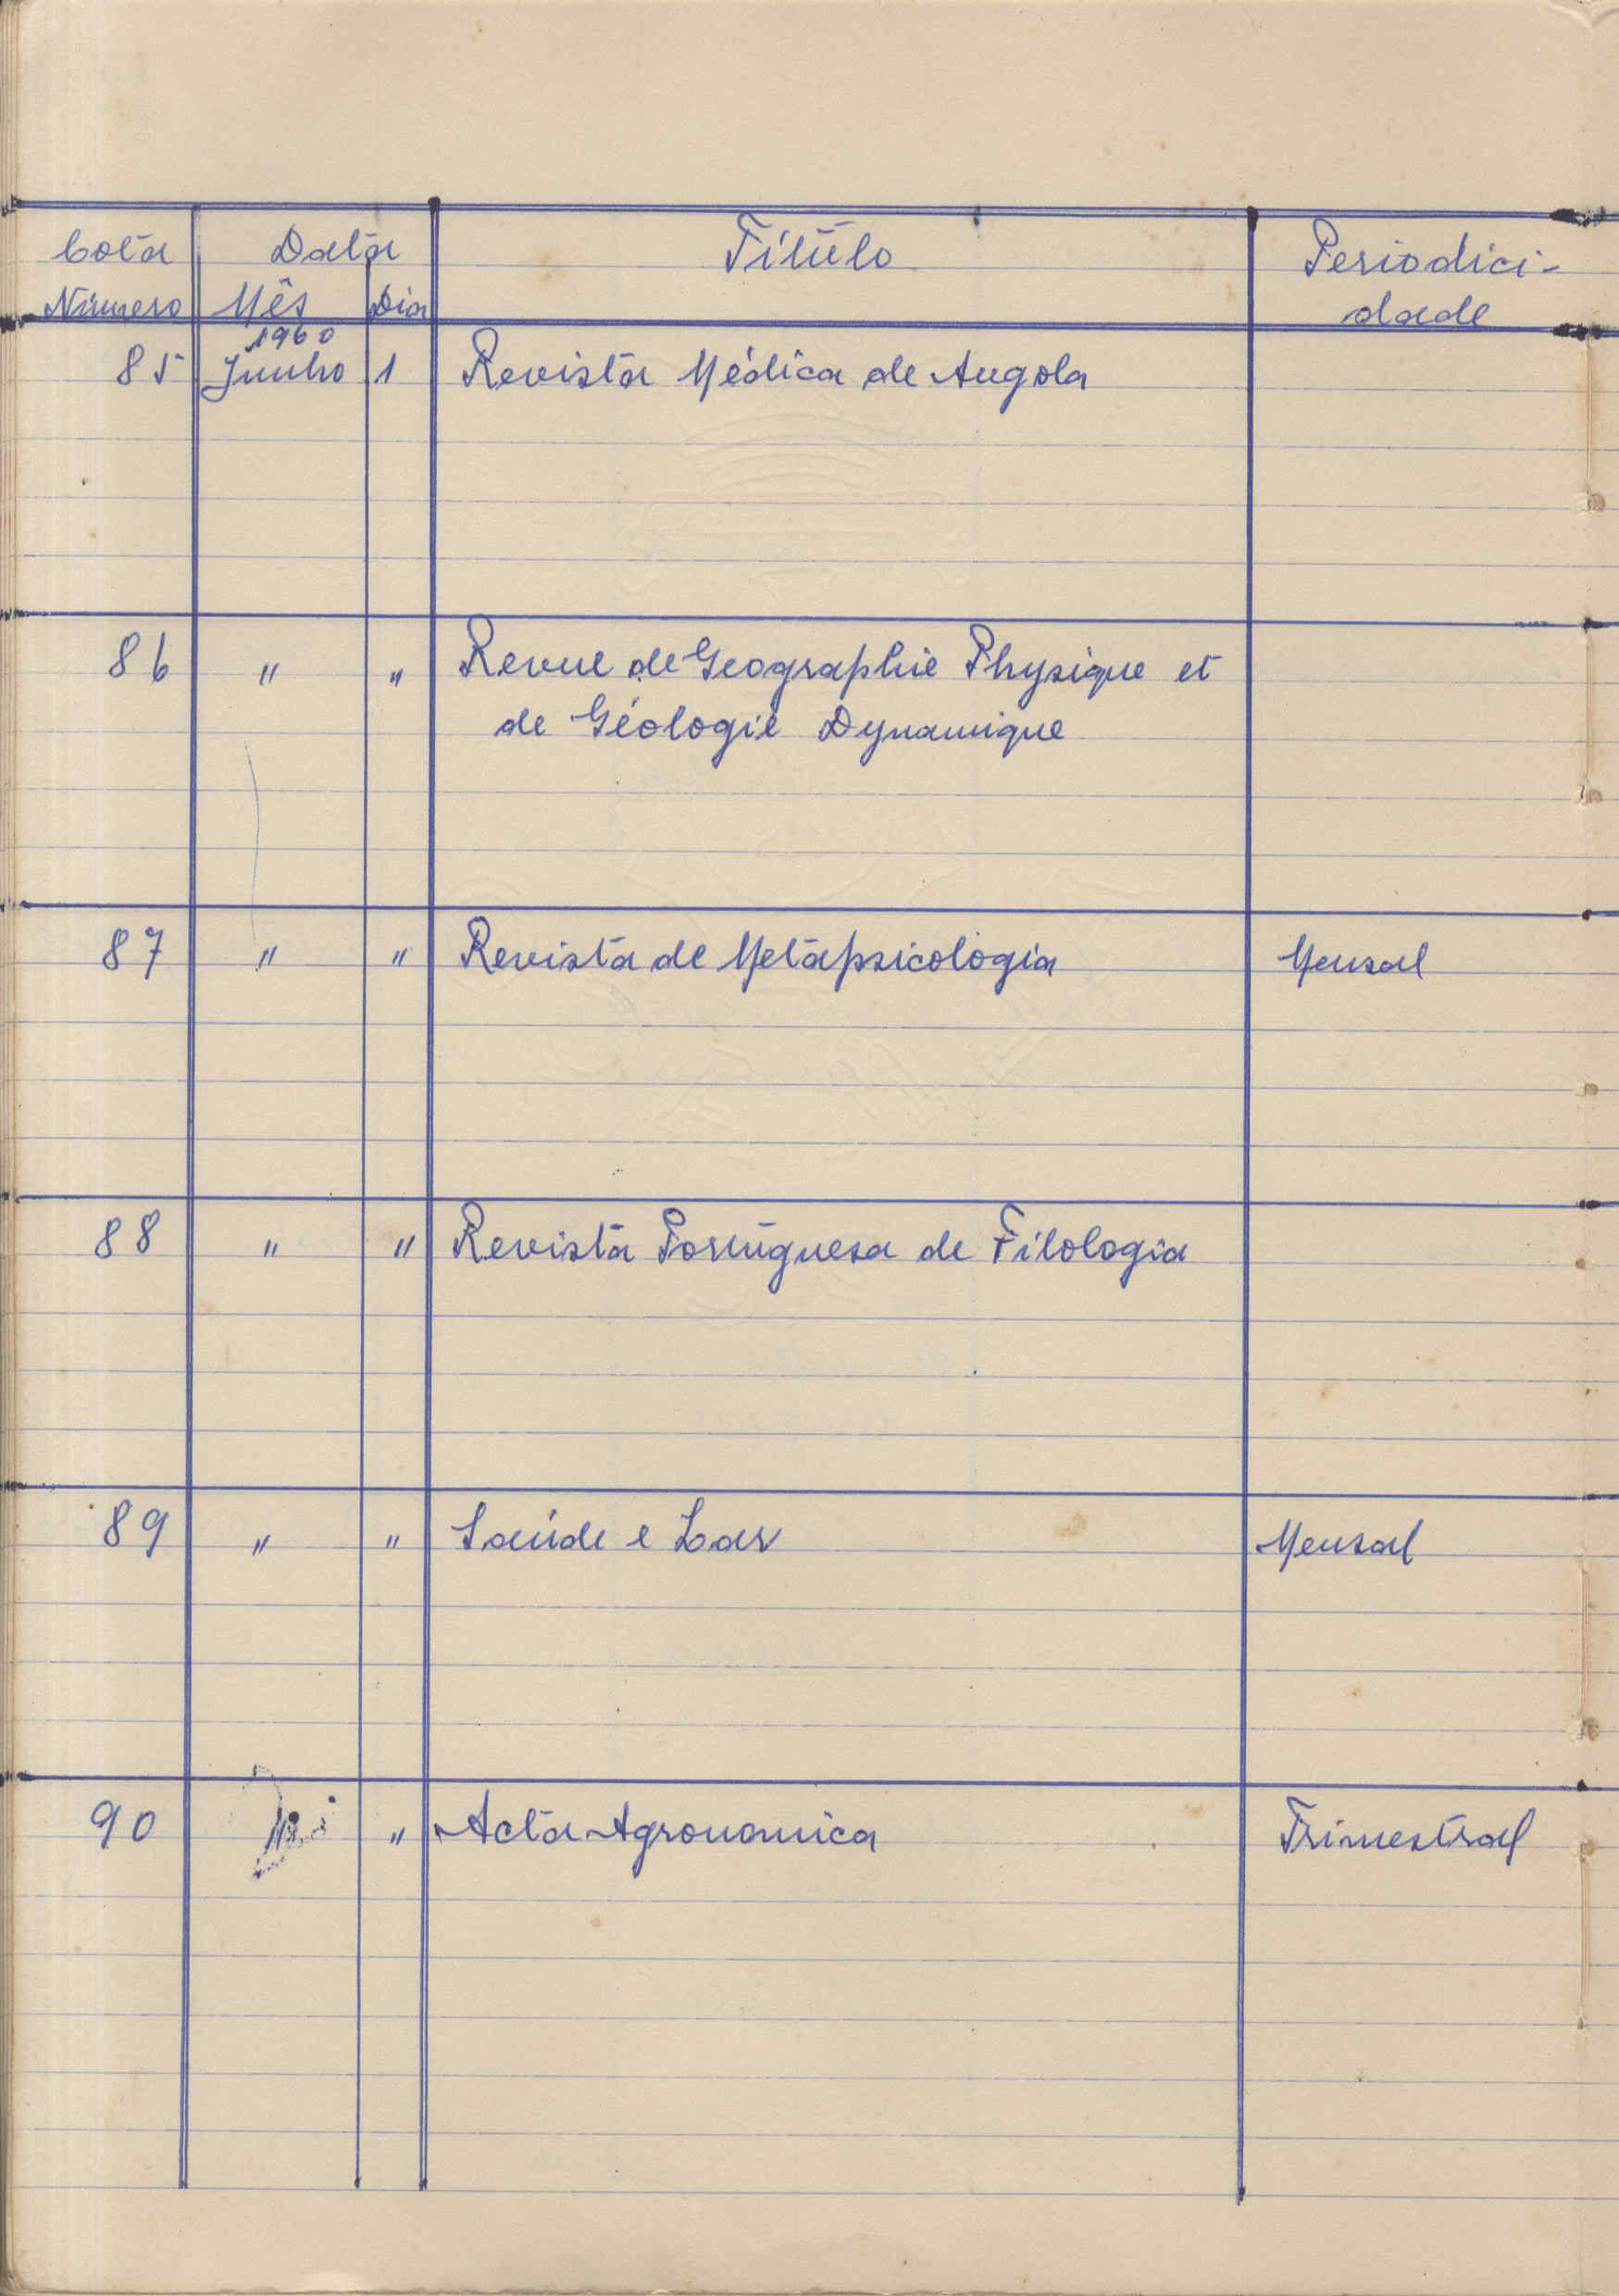 Cota Data Título Periodici-
Número Mês Dia dade
1960
85 Junho 1 Revista Médica de Angola
86 " " Revue de Geographie Physique et
de Géologie Dynamique
87 " " Revista de Metapsicologia Mensal
88 " " Revista Portuguesa de Filologia
89 " " Saúde e Lar Mensal
90 " Acta Agronomica Trimestral